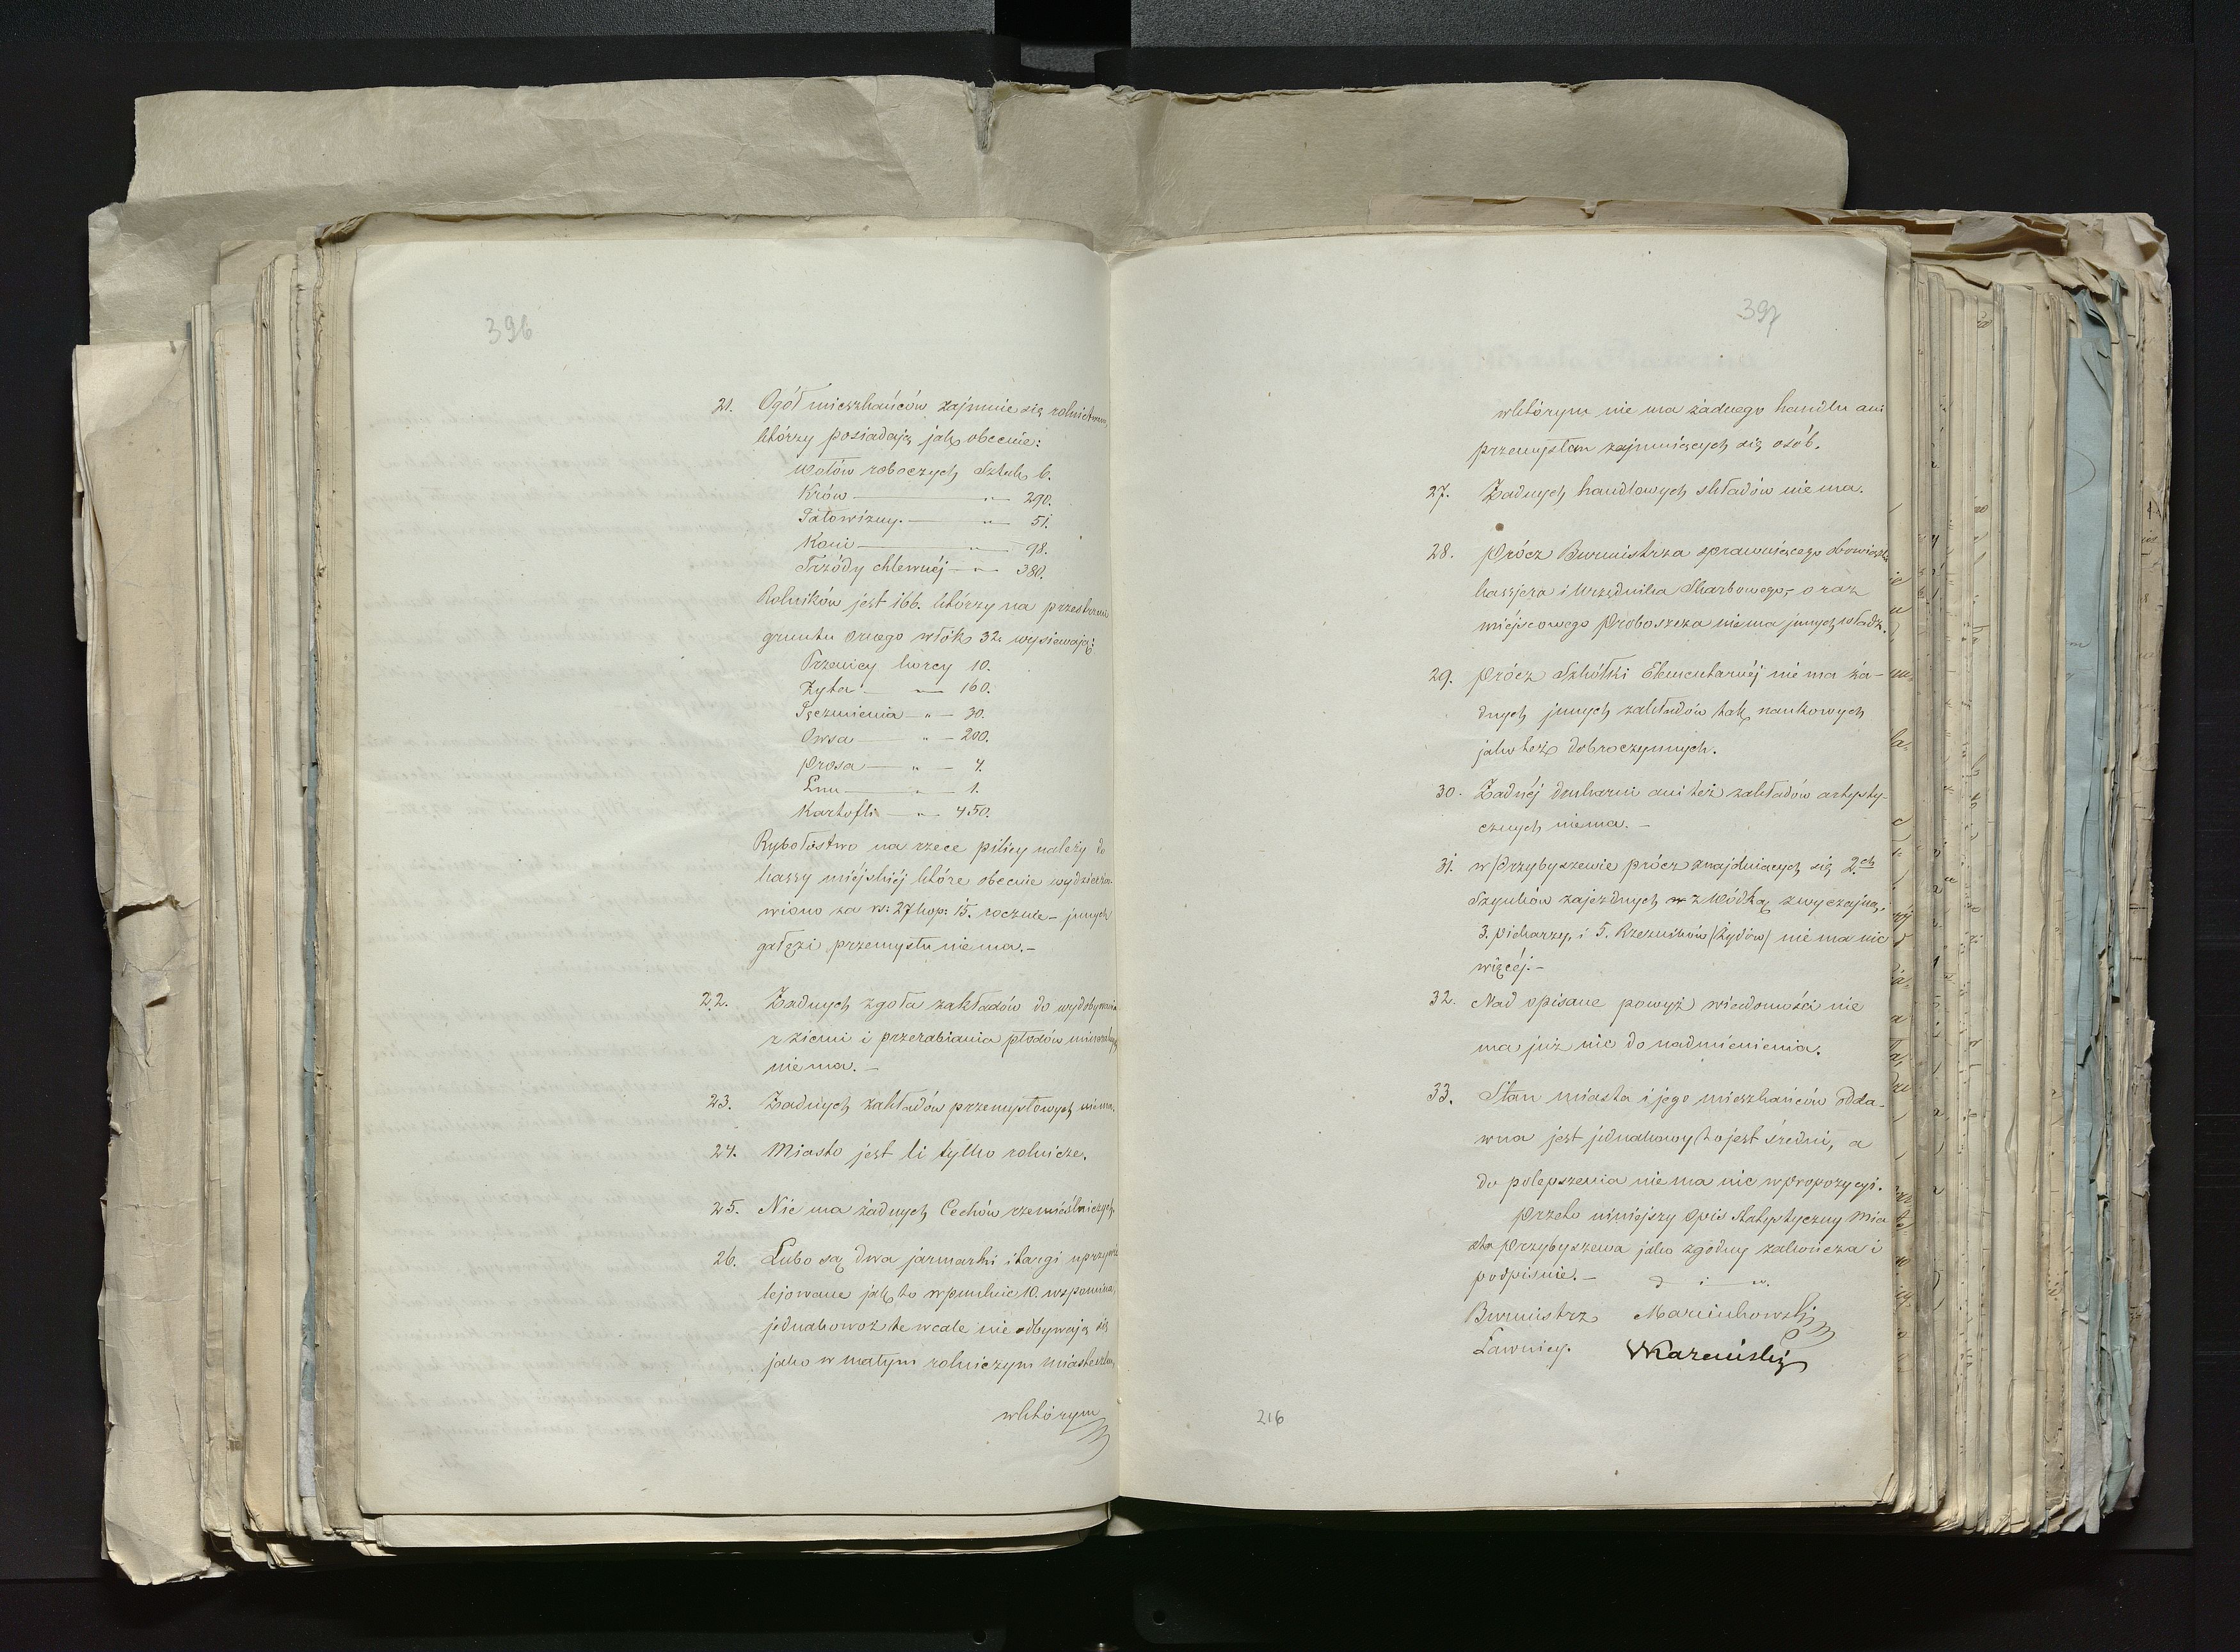 396
21. Ogół mieszkańców zajmuie się rolnictwem,
którzy posiadają jak obecnie:
Wołów roboczych Sztuk 6.
Krów — „ — 290.
Jałowizny — „ — 51.
Koni — „ — 98.
Trzódy chlewnéj — „ — 380.
Rolników jest 166. którzy na przestrzeni
gruntu ornego włók 32. wysiewają:
Pszenicy korcy 10.
Żyta — „ — 160.
Jęczmienia — „ — 30.
Owsa — „ — 200.
Prosa — „ — 4.
Lnu — „ — 1.
Kartofli — „ — 450.
Rybołostwo na rzece pilicy należy do
kassy miéjskiéj które obecnie wydzierża-
wiono za rs: 27 kop: 15. rocznie – jnnych
gałęzi przemysłu niema. –
22. Żadnych zgoła zakładów do wydobywania
z ziemi i przerabiania płodów mineralnych
niema. –
23. Żadnych zakładów przemysłowych niema.
24. Miasto jest li tylko rolnicze.
25. Nie ma żadnych Cechów rzemieślniczych.
26. Lubo są dwa jarmarki i targi uprzywi
lejowane jak to w punkcie 10. wspomina,
jednakowoż te wcale nie odbywają się
jako w małym rolniczym miasteczku,
w którym
397
w którym nie ma żadnego handlu ani
przemysłem zajmuiących się osób.
27. Żadnych handlowych składów niema.
28. Prócz Burmistrza sprawuiącego obowiązki
kassjera i Urzędnika Skarbowego, oraz
miéjscowego Proboszcza niema jnnych władz.
29. Prócz Szkółki Elementarnéj niema ża-
dnych jnnych zakładów tak naukowych
jako też dobroczynnych.
30. Żadnéj drukarni ani też zakładów artysty-
cznych niema. –
31. w Przybyszewie prócz znajduiących się 2ch
Szynków zajezdnych z Wódką zwyczajną,
3. piekarzy, i 5. Rzezników (Żydów) niema nic
więcéj. –
32. Nad opisane powyż wiadomości nie
ma już nic do nadmienienia.
33. Stan miasta i jego mieszkańców odda-
wna jest jednakowy to jest średni, a
do polepszenia niema nic w propozycyi.
Przeto niniejszy Opis Statystyczny Mia
sta Przybyszewa jako zgodny zakończa i
podpisuie. –
Burmistrz Marcinkowski
Ławnicy. WKarciński
216